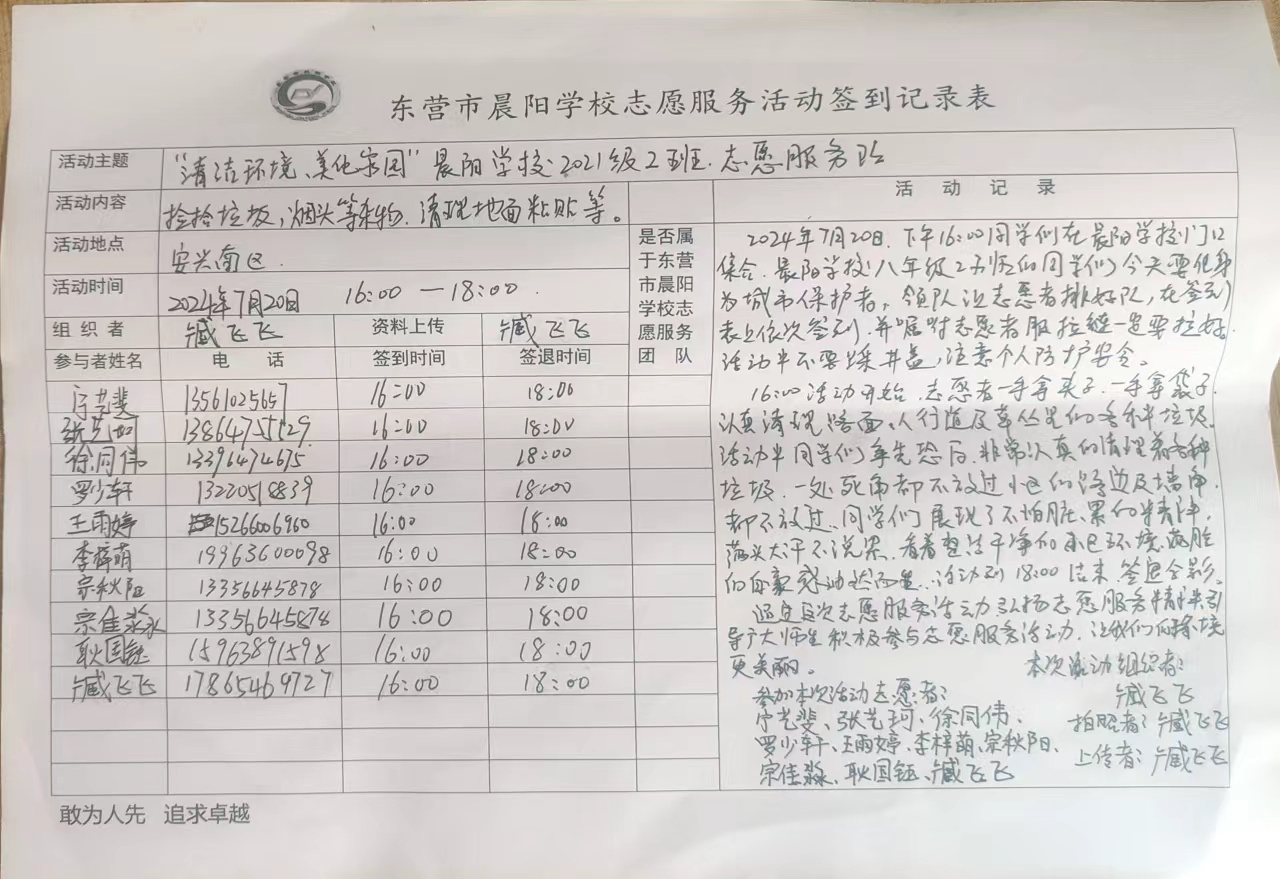 东营市晨阳学校志愿服务活动签到记录表
活动主题 “清洁环境、美化家园”晨阳学校2021级2班.志愿服务队
活动内容 捡拾垃圾,烟头等杂物.清理地面粘贴等。
活动地点 安兴南区.
活动时间 2024年7月20日 16:00 —18:00.
组织者 臧飞飞 资料上传 臧飞飞
参与者姓名 电话 签到时间 签退时间
宁艺斐 13561025657 16:00 18:00
张艺珂 13864755129 16:00 18:00
徐同伟 13396474675 16:00 18:00
罗少轩 13220518839 16:00 18:00
王雨婷 15266006960 16:00 18:00
李梓萌 19963600098 16:00 18:00
宗秋阳 13356645878 16:00 18:00
宗佳淼 13356645878 16:00 18:00
耿国钰 15963891598 16:00 18:00
臧飞飞 17865469727 16:00 18:00
是否属
于东营
市晨阳
学校志
愿服务
团队
活动记录
2024年7月20日.下午16:00同学们在晨阳学校门口
集合.晨阳学校八年级2班的同学们今天要化身
为城市保护者,领队让志愿者排好队,在签到
表上依次签到,并嘱咐志愿者服拉链一定要拉好.
活动中不要踩井盖,注意个人防护安全。
16:00活动开始.志愿者一手拿夹子.一手拿袋子.
认真清理路面、人行道及草丛里的各种垃圾.
活动中同学们争先恐后.非常认真的清理着各种
垃圾.一处死角都不放过小区的路边及墙角.
都不放过.同学们展现了不怕脏、累的精神,
满头大汗不说累.看着整洁干净的小区环境.满腔
的自豪感油然而生.活动到18:00结束.签退合影.
通过这次志愿服务活动弘扬志愿服务精神.引
导广大师生积极参与志愿服务活动.让我们的环境
更美丽。
本次活动组织者:
臧飞飞
参加本次活动志愿者:
宁艺斐、张艺珂、徐同伟、
拍照者:臧飞飞
罗少轩、王雨婷、李梓萌、宗秋阳、
上传者:臧飞飞
宗佳淼、耿国钰、臧飞飞
敢为人先 追求卓越